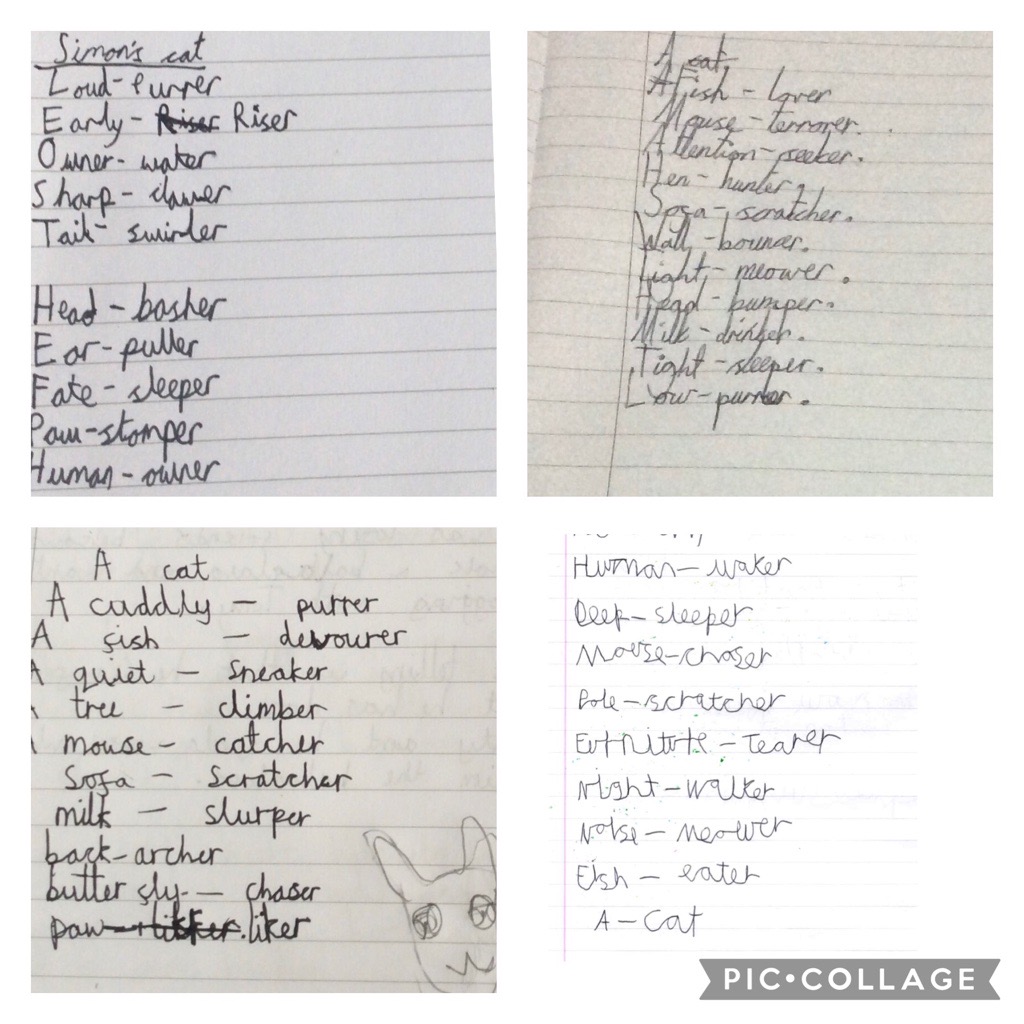 Simon's cat
Loud-Purrer
Early- Riser Riser
Owner- waker
Sharp- clawer
Tail- swirler
Head - basher
Ear - puller
Fate - sleeper
Paw-stomper
Human - owner
A cat
A Fish - lover
Mouse - terrorer.
Attention-seeker.
Hen - hunter,
Sofa - scratcher.
Wall - bouncer.
Light - meower.
Head - bumper.
Milk - drinker.
Tight - sleeper.
Low - purrer.
A cat
A cuddly - purrer
A fish - devourer
A quiet - sneaker
A tree - climber
A mouse - catcher
Sofa - scratcher
milk - slurper
back-archer
butter fly - chaser
paw - liker
Human - waker
Deep - sleeper
Mouse-chaser
Pole - scratcher
Furniture - Tearer
Night - walker
Noise - meower
Fish - eater
A - Cat
PIC•COLLAGE